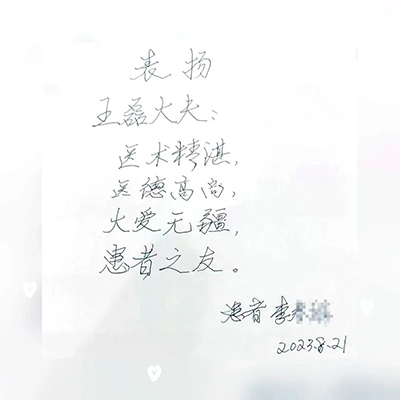 表扬
王磊大夫：
医术精湛，
医德高尚，
大爱无疆，
患者之友。
患者李
2023.8.21